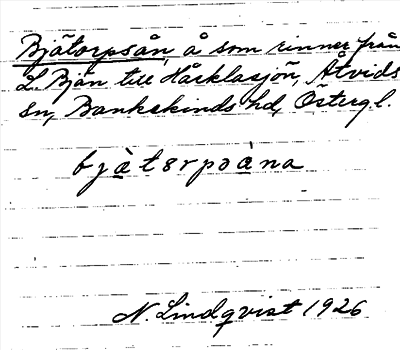 Bjätorpsån, å som rinner från
L. Bjän till Håcklasjön, Åtvids
sn, Bankekinds hd, Östergl.
bjàtɘrpoàna
N. Lindqvist 1926